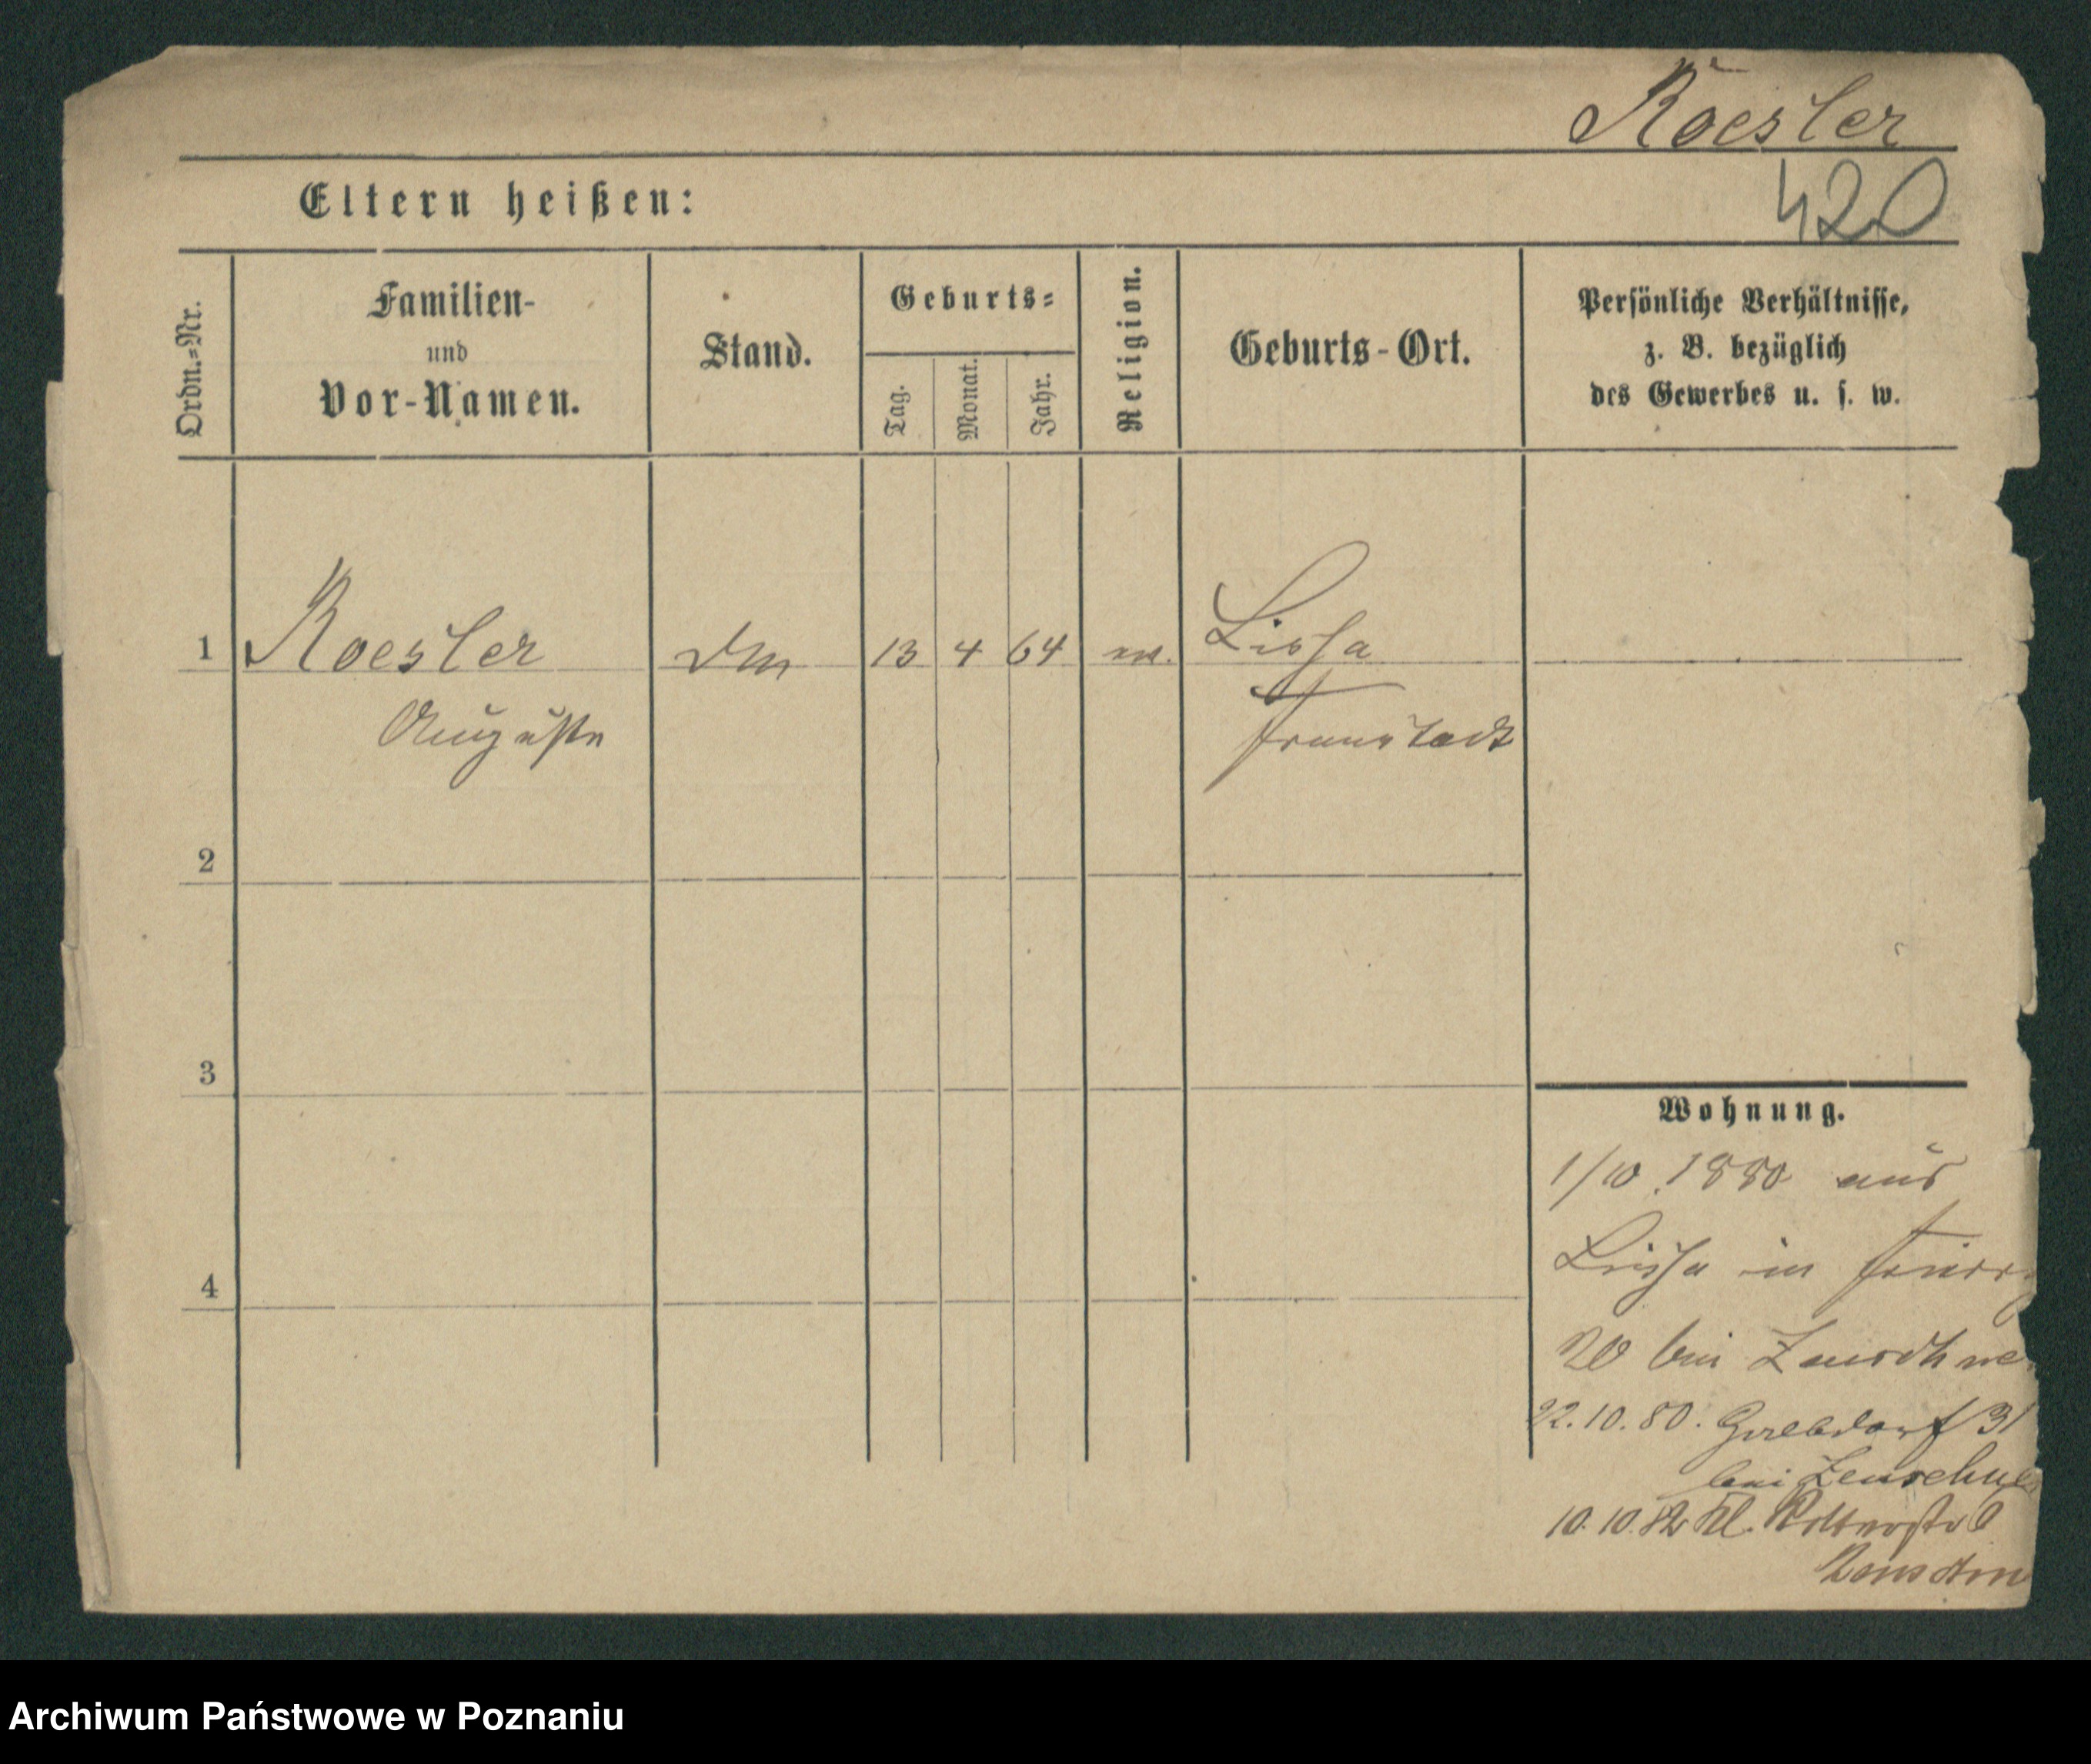 Roesler
420
Eltern heißen:
Ordn.=Nr.
Familien-
und
Vor-Namen.
Stand.
Geburts=
Tag.
Monat.
Jahr.
Religion.
Geburts-Ort.
Persönliche Verhältnisse,
z. B. bezüglich
des Gewerbes u. s. w.
1 Roesler 13 4 64 Lissa
Auguste Fraustadt
2
3
4
Wohnung.
1/10. 1880 aus
Lissa in
20 bei
22.10.80. 31
bei
10.10.82 Kl.
Archiwum Państwowe w Poznaniu